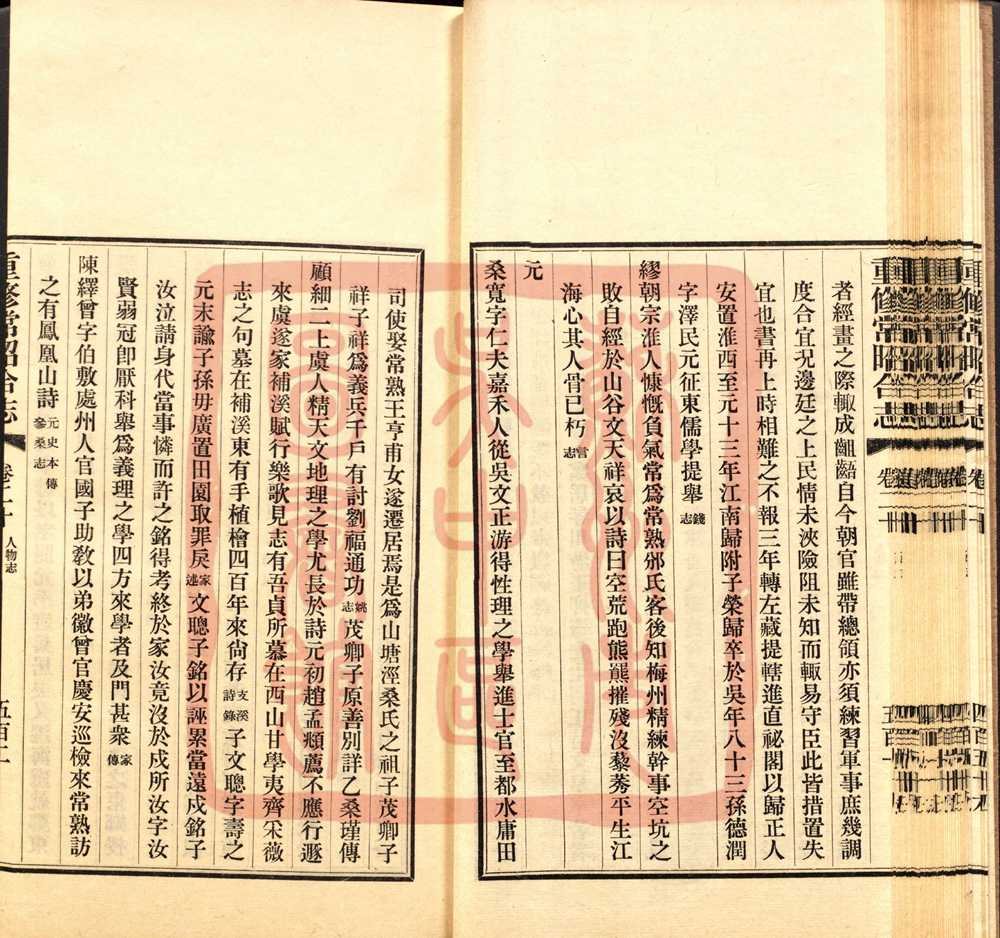 重修常昭合志
者經畫之際輙成齟齬自今朝官雖帶總領亦須練習軍事庶幾調
度合宜況邊廷之上民情未浹險阻未知而輙易守臣此皆措置失
宜也書再上時相難之不報三年轉左藏提轄進直祕閣以歸正人
安置淮西至元十三年江南歸附子榮歸卒於吳年八十三孫德潤
字澤民元征東儒學提舉錢志
繆朝宗淮人慷慨負氣常爲常熟邠氏客後知梅州精練幹事空坑之
敗自經於山谷文天祥哀以詩曰空荒跑熊羆摧殘沒藜莠平生江
海心其人骨已朽言志
元
桑寬字仁夫嘉禾人從吳文正游得性理之學舉進士官至都水庸田
司使娶常熟王亨甫女遂遷居焉是爲山塘涇桑氏之祖子茂卿子
祥子祥爲義兵千戶有討劉福通功姚志茂卿子原善別詳乙桑瑾傳
顧細二上虞人精天文地理之學尤長於詩元初趙孟頫薦不應行遯
來虞遂家補溪賦行樂歌見志有吾貞所慕在西山甘學夷齊宋薇
志之句墓在補溪東有手植檜四百年來尙存支溪詩錄子文聰字壽之
元末諭子孫毋廣置田園取罪戾家述文聰子銘以誣累當遠戍銘子
汝泣請身代當事憐而許之銘得考終於家汝竟沒於戍所汝字汝
賢弱冠卽厭科舉爲義理之學四方來學者及門甚衆家傳
陳繹曾字伯敷處州人官國子助敎以弟徽曾官慶安巡檢來常熟訪
之有鳳凰山詩元史本傳參桑志
重修常昭合志
卷二十
人物志
五百二